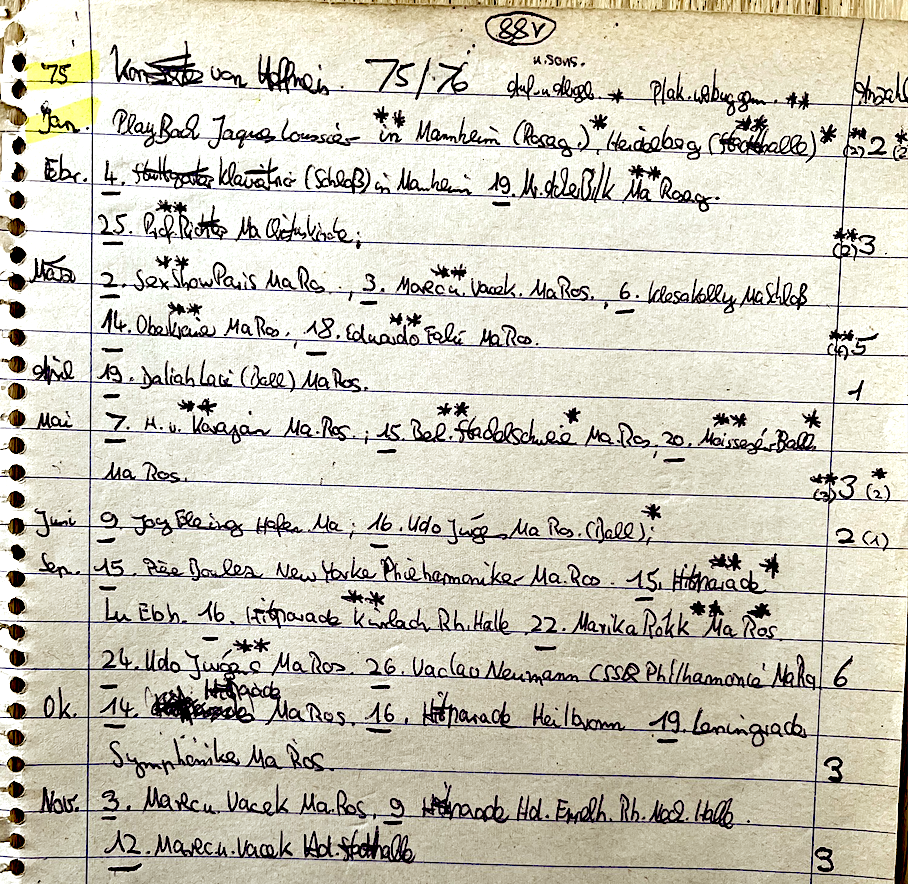 88v
u. sons.
'75 Konzerte von Hoffmeis. 75/76 auf.u.abgeb. * Plak.u.bu.ggem. ** Anzahl
Jan. Play Bach Jaques Loussier ** in Mannheim (Roseg.)*, Heidelberg (Stadthalle)** * **(2) 2 (2)
Ebr. 4. Stuttgarter Klaviertrio (Schloß) in Manheim 19. Mr. Acker Bilk ** Ma Roseg.
25. Prof. Richter ** Ma Christuskirche; **(2) 3
März 2. Sex Show Paris ** Ma Ros., 3. Marec u. Vacek ** Ma Ros., 6. Ma Schloß
14. Oberkrainer ** Ma Ros., 18. Eduardo Falú ** Ma Ros. **(4) 5
April 19. Daliah Lavi (Ball) Ma Ros. 1
Mai 7. H. v. Karajan ** Ma. Ros.; 15. Bel. ** * Ma Ros, 20. Ball ** *
Ma Ros. **(3) 3 (2)*
Juni 9. Hafen Ma; 16. Udo Jürgens Ma Ros. (Ball)*; 2 (1)
Sep. 15. Boulez New Yorker Philharmoniker Ma. Ros. 15. Hitparade ** *
Lu Ebh. 16. Hitparade ** Rh. Halle 22. Marika Rökk ** Ma Ros *
24. Udo Jürgens ** Ma Ros. 26. Vaclav Neumann CSSR Philharmonie Ma Ro 6
Ok. 14. Hitparade Ma Ros. 16. Hitparade Heilbronn 19. Leningrader
Symphoniker Ma Ros. 3
Nov. 3. Marec u. Vacek Ma. Ros, 9 Hitparade Hd. Rh. Neck. Halle.
12. Marec u. Vacek Hd. Stadthalle 3